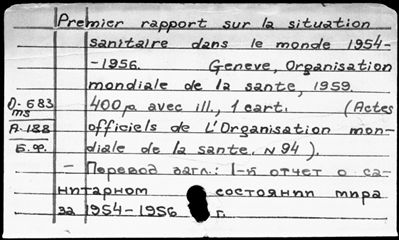 Premier rapport sur la situation
sanitaire dans le monde 1954-
-1956. Geneve, Organisation
mondiale de la sante, 1959.
О-683
ms
400 p. avec ill., 1 cart. (Actes
А-188
officiels de L'Organisation mon-
Б.Ф.
diale de la sante. N 94).
- Перевод загл.: 1-й отчет о са-
нитарном состоянии мира
за 1954-1956 г.